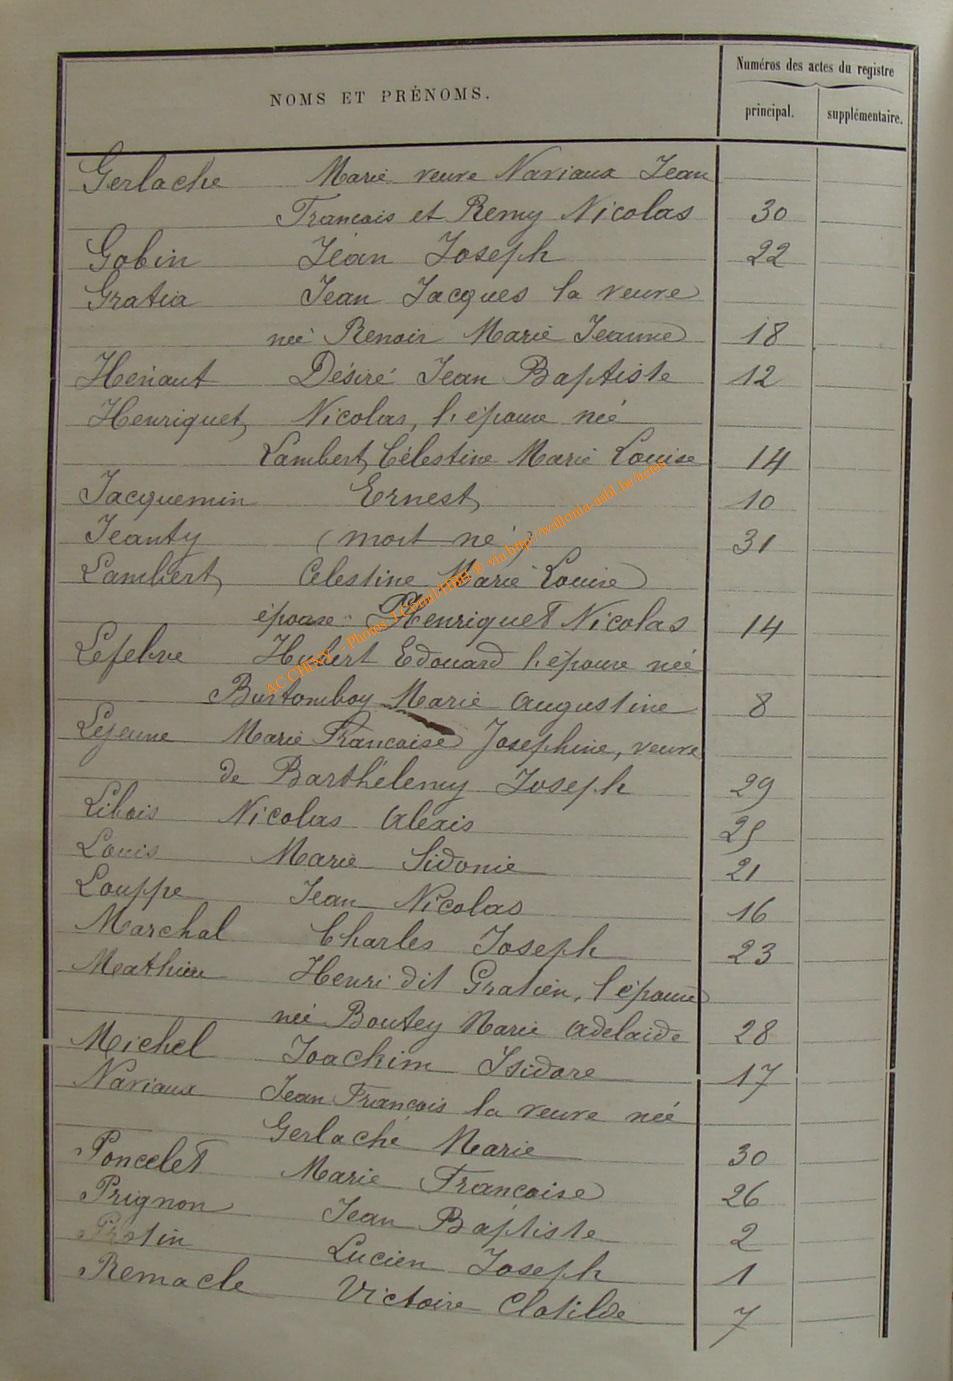 Numéros des actes du registre
NOMS ET PRÉNOMS.
principal. supplémentaire.
Gerlache Marie veuve Naviaux Jean
Francois et Remy Nicolas 30
Gobin Jean Joseph 22
Gratia Jean Jacques la veuve
neé Renoir Marie Jeanne 18
Henaut Désiré Jean Baptiste 12
Henriquet, Nicolas, l'épouse neé
Lambert, Célestine Marie Louise 14
Jacquemin Ernest, 10
Jeanty (mort né) 31
Lambert, Celestine Marie Louise
épouse Henriquet Nicolas 14
Lefebvre Hubert Edouard l'épouse neé
Burtomboy Marie Augustine 8
Lejeune Marie Francaise Josephine, veuve
de Barthélemy Joseph 29
Libois Nicolas Alexis 25
Louis Marie Sidonie 21
Louppe Jean Nicolas 16
Marchal Charles Joseph 23
Mathieu Henri dit Gratien, l'épouse
neé Boutey Marie Adelaide 28
Michel Joachim Isidore 17
Naviaux Jean François la veuve neé
Gerlache Marie 30
Poncelet Marie Francoise 26
Prignon Jean Baptiste 2
Protin Lucien Joseph 1
Remacle Victoire Clotilde 7